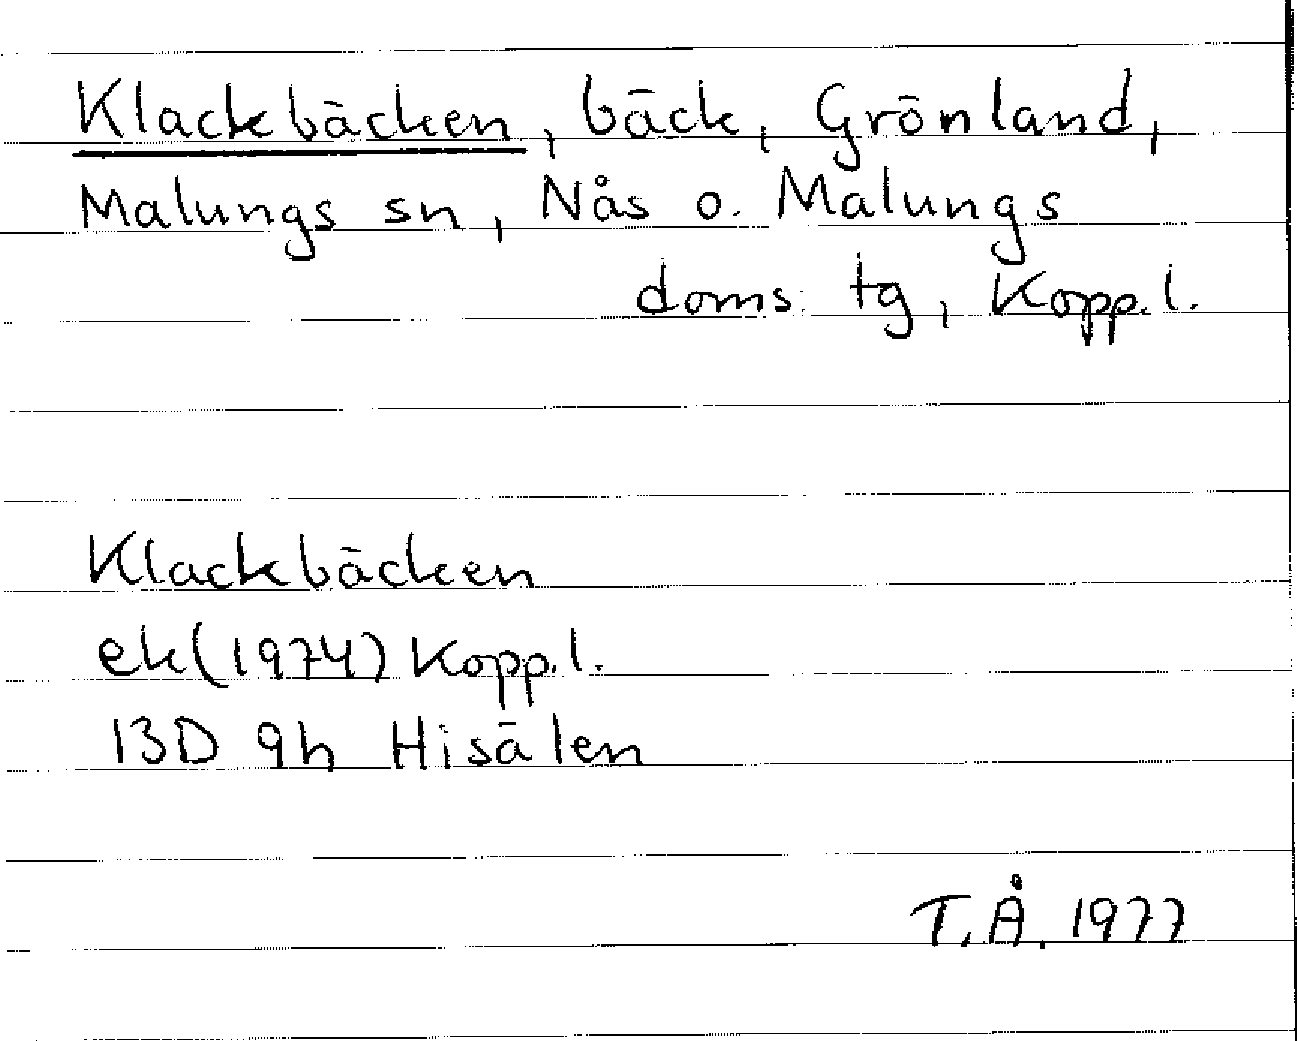 Klackbäcken, bäck, Grönland,
Malungs sn, Nås o. Malungs
doms. tg, Kopp.l.
Klackbäcken
ek(1974) Kopp.l.
13D 9h Hisälen
T.Å. 1977